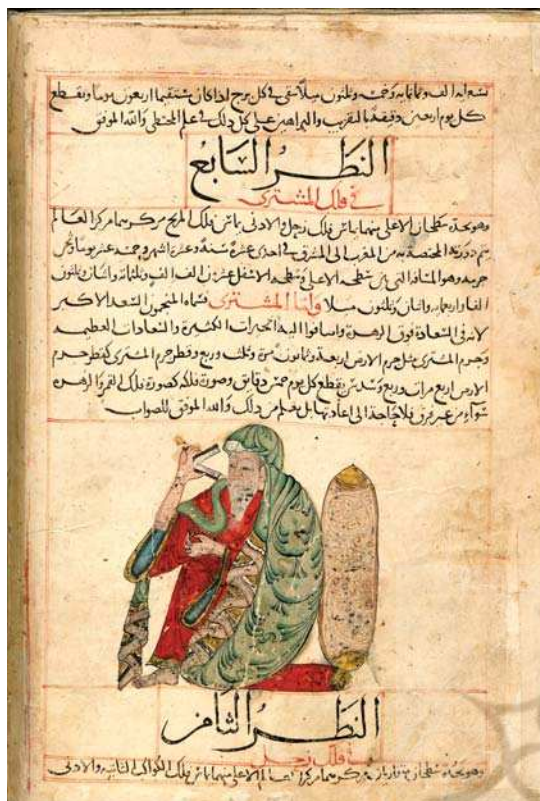 تسعمايه الف وثمانمايه وخمسه وثلثون ميلا يبقى في كل برج اذا كان مستقيما اربعون يوما ويقطع
كل يوم اربعين دقيقة بالتقريب والبراهين على كل ذلك في علم المجسطي والله الموفق
النظر السابع
في فلك المشتري
وهو يحده سطحان الاعلى منهما يماس فلك زحل والادنى يماس فلك المريخ مركزهما مركز العالم
يتم دورته المختصة به من المغرب الى المشرق في احدى عشرة سنة وعشرة اشهر وخمسة عشر يوما
جرمه وهو المسافة التي بين سطحه الاعلى وسطحه الاسفل عشرون الف الف وثلثمائة واثنان وثلثون
الفا واربعمايه واثنان وثلثون ميلا واما المشتري فسماه المنجمون السعد الاكبر
لانه في السعادة فوق الزهرة واضافوا اليه الخيرات الكثيرة والسعادات العظيمه
وجرم المشتري مثل جرم الارض اربعة وثمانون مرة وثلث وربع وقطر جرم المشتري كقطر جرم
الارض اربع مرات وربع وسدس يقطع كل يوم خمس دقايق وصورة فلكه كصورة فلك القمر والزهرة
سواء من غير فرق فلا حاجة الى اعادتها بل يعلم من ذلك والله الموفق للصواب
النظر الثامن
في فلك زحل
وهو يحده سطحان متوازيان مركزهما مركز العالم الاعلى منهما يماس فلك الكواكب الثابته والادنى